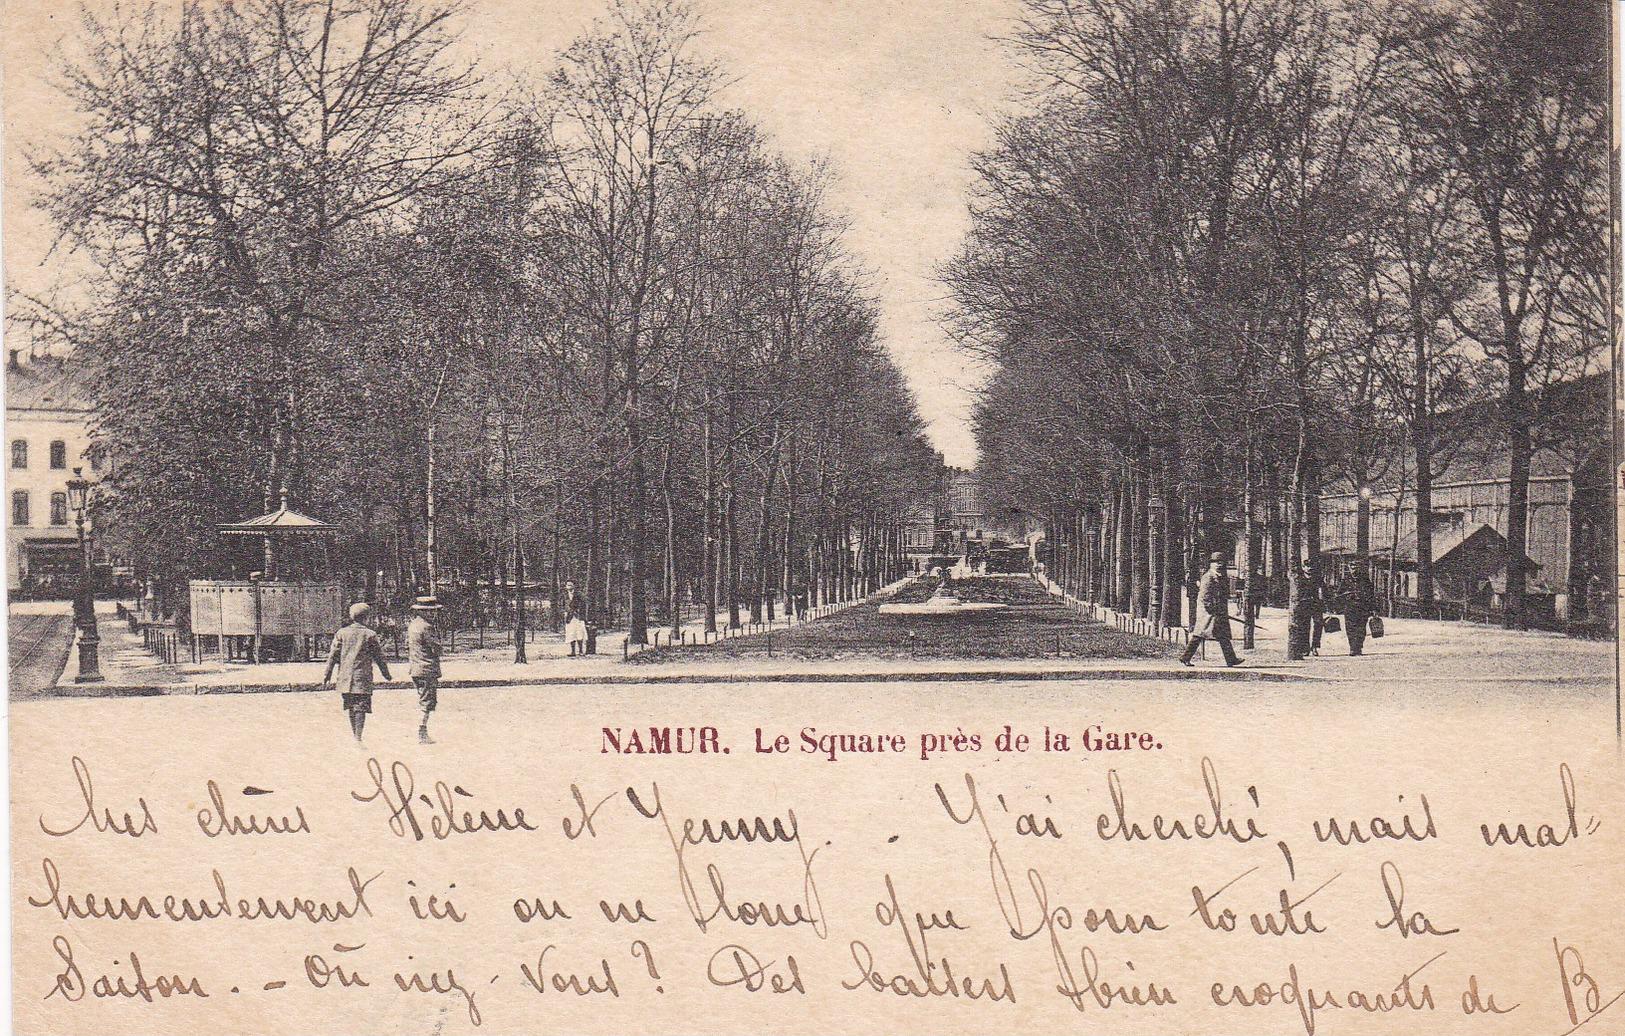 NAMUR. Le Square près de la Gare.
Mes chères Hélène et Jenny. - J'ai cherché, mais mal=
heureusement ici on ne loue que pour toute la
Saison. - Où irez-vous? Des baisers bien croquants de B